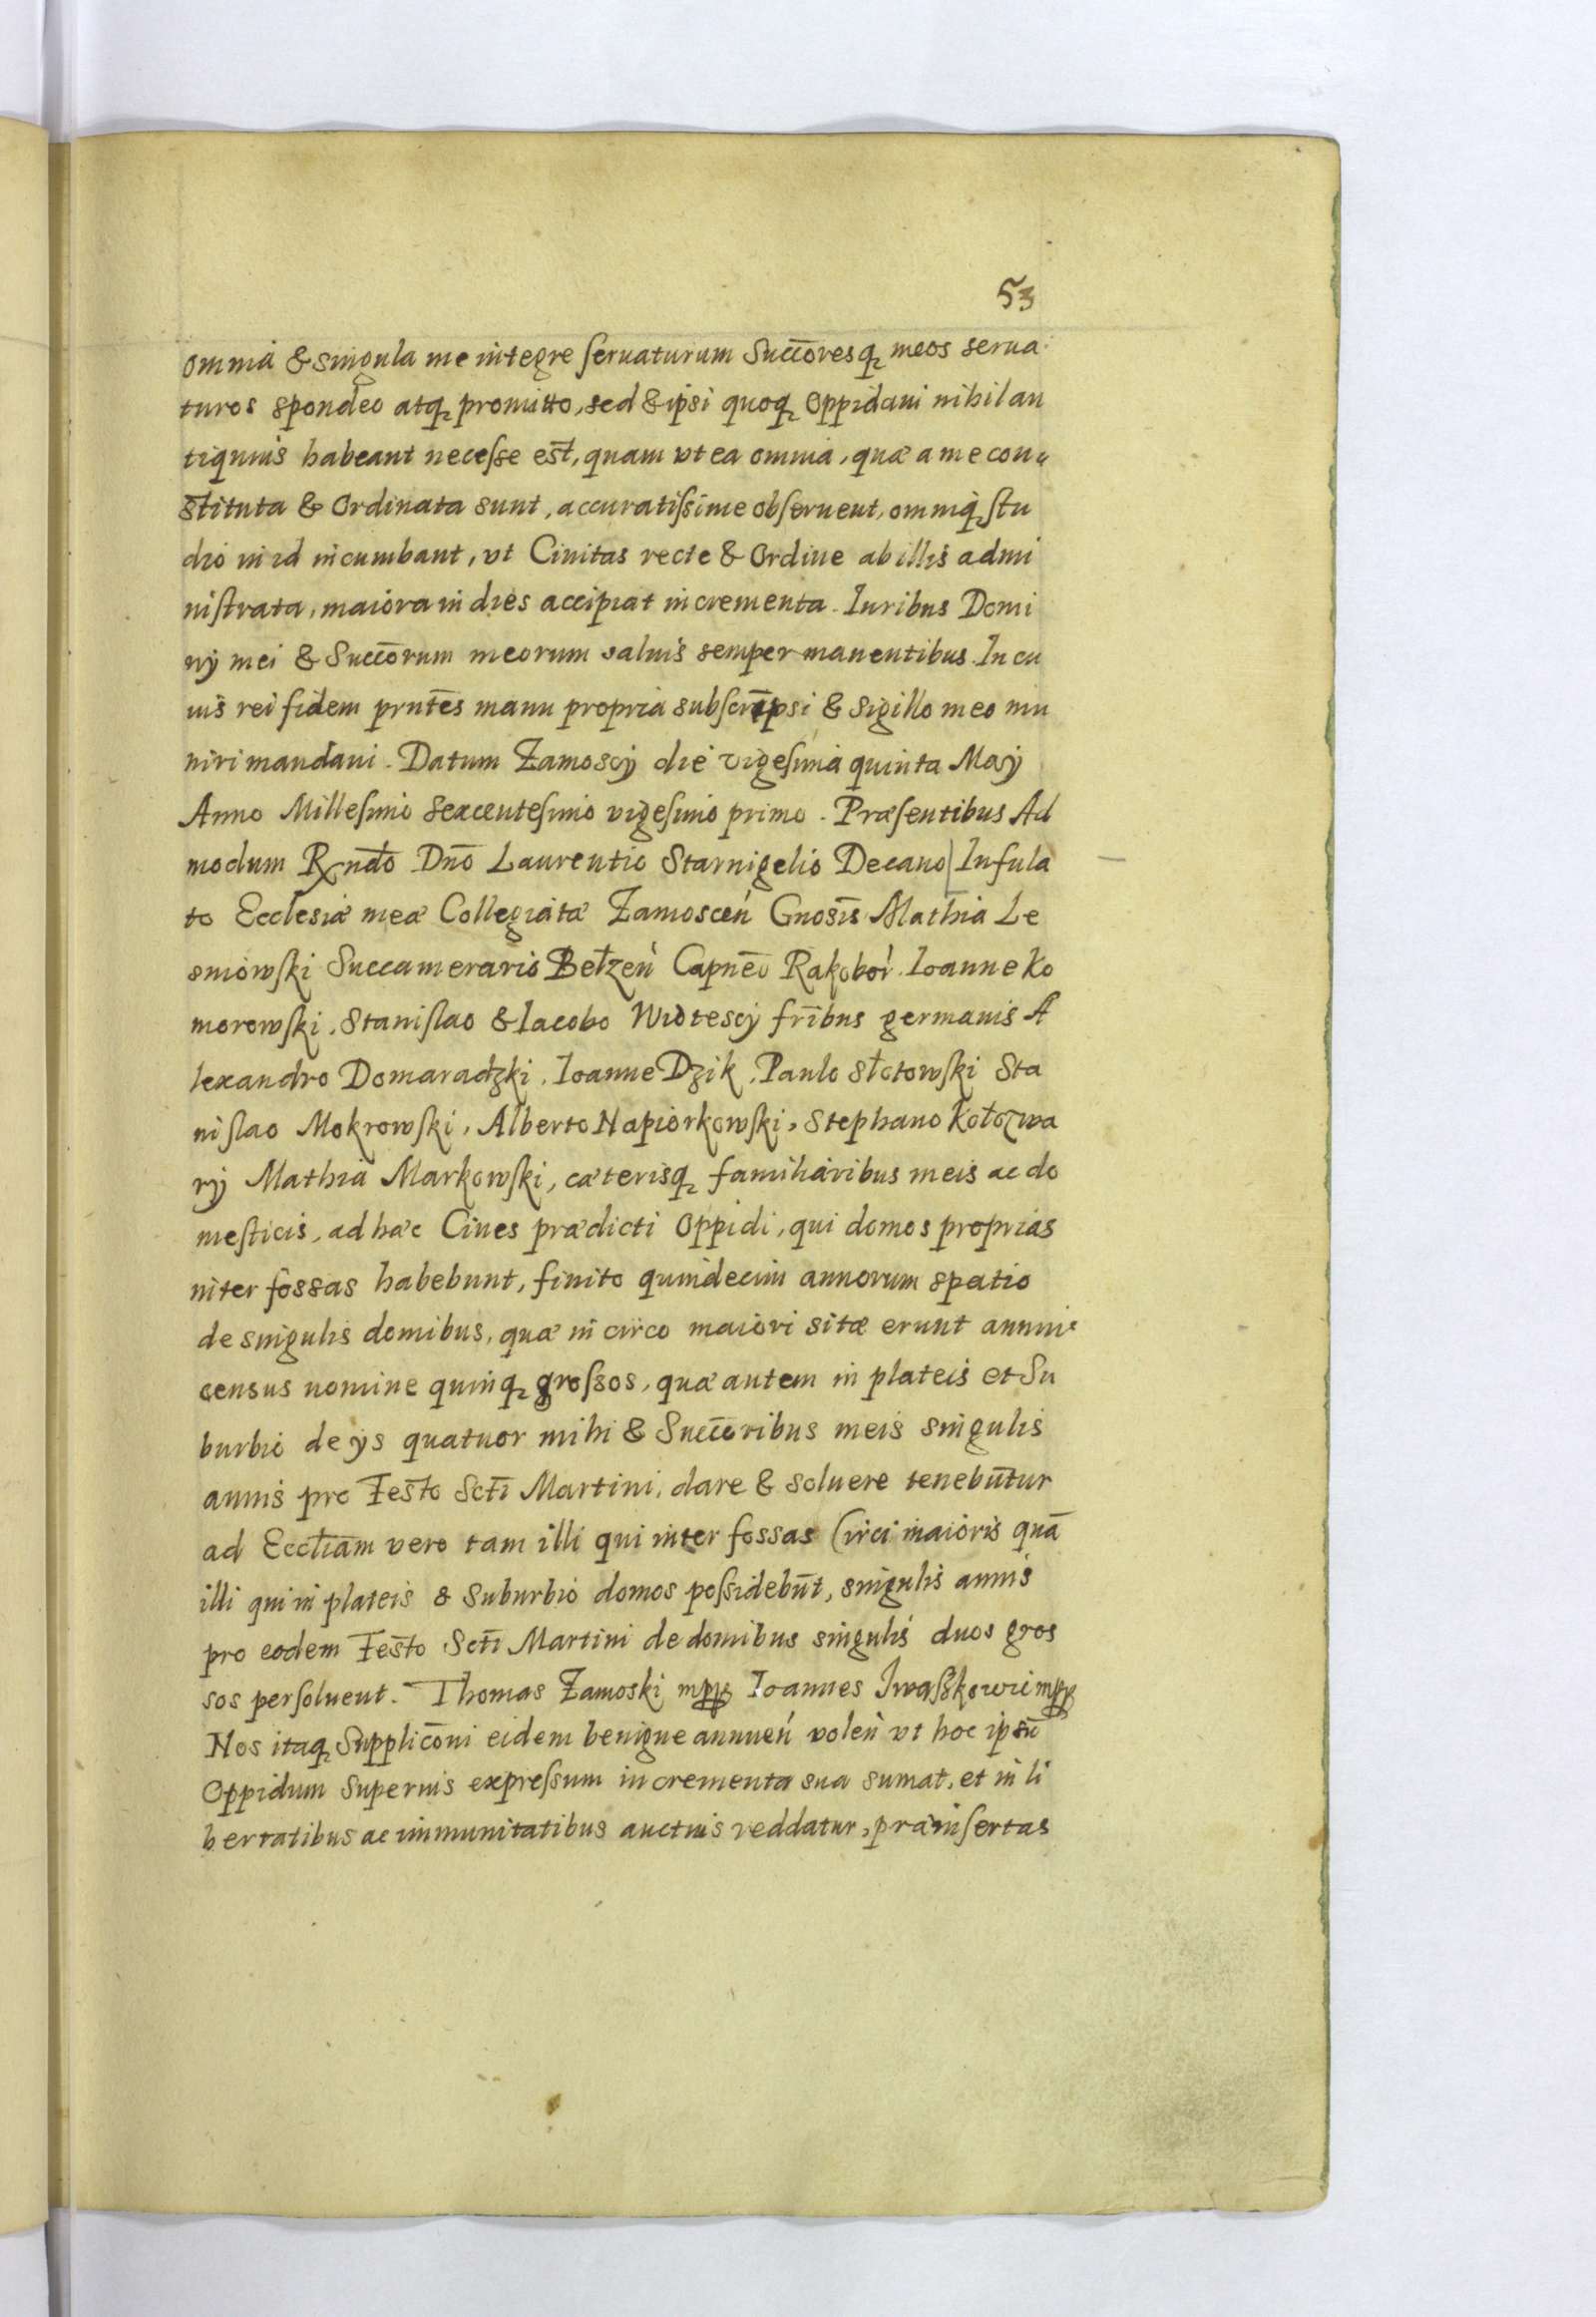 53
omnia & singula me integre seruaturum Succ̄oresq meos serua
turos spondeo atq promitto, sed & ipsi quoq Oppidani nihil an
tiquius habeant necesse est, quam vt ea omnia, quæ a me con„
stituta & Ordinata sunt, accuratissime obseruent, omniq stu
dio in id incumbant, vt Ciuitas recte & Ordine ab illis admi
nistrata, maiora in dies accipiat incrementa. Iuribus Domi
nÿ mei & Succ̄orum meorum saluis semper manentibus. In cu
ius rei fidem prnt̄es manu propria subscripsi & Sigillo meo mu
niri mandaui. Datum Zamoscÿ die vigesima quinta Maÿ
Anno Millesimo Sexcentesimo vigesimo primo. Præsentibus Ad
modum Rndo Dno Laurentio Starnigelio Decano Infula
to Ecclesiæ meæ Collegiatæ Zamoscen Gnosis Mathia Le
sniowski Succamerario Bełzen Capneo Rakobor. Ioanne Ko
morowski, Stanislao & Iacobo Wiotescÿ fribus germanis A
lexandro Domaradzki, Ioanne Dzik, Paulo Słotowski Sta
nislao Mokrowski, Alberto Napiorkowski, Stephano Kołozwa
rÿ Mathia Markowski, cæterisq familiaribus meis ac do
mesticis, ad hæc Ciues prædicti Oppidi, qui domos proprias
inter fossas habebunt, finito quindecim annorum spatio
de singulis domibus, quæ in circo maiori sitæ erunt annui
census nomine quinq grossos, quæ autem in plateis et Su
burbio de ÿs quatuor mihi & Succ̄oribus meis singulis
annis pro Festo Scti Martini, dare & soluere tenebūtur
ad Eccliam vero tam illi qui inter fossas Circi maioris quā
illi qui in plateis & Suburbio domos possidebūt, singulis annis
pro eodem Festo Scti Martini de domibus singulis duos gros
sos persoluent. Thomas Zamoski mpp Ioannes Iwaszkowic mpp
Nos itaq Supplicōni eidem benigne annuen volen vt hoc ipsū
Oppidum Superius expressum incrementa sua sumat, et in li
bertatibus ac immunitatibus auctius reddatur, præinsertas